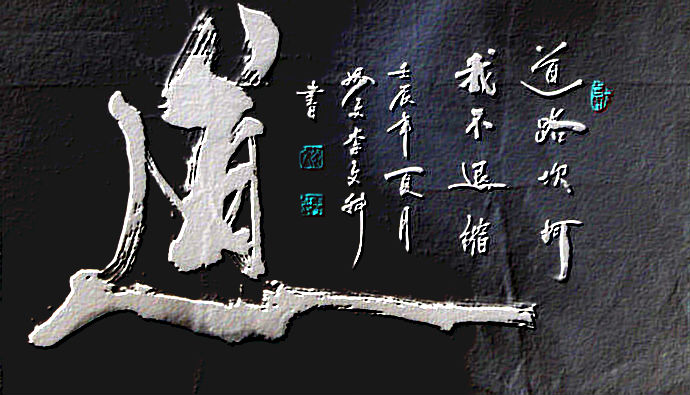 道路坎坷
我不退缩
壬辰年夏月
李文科
書
道